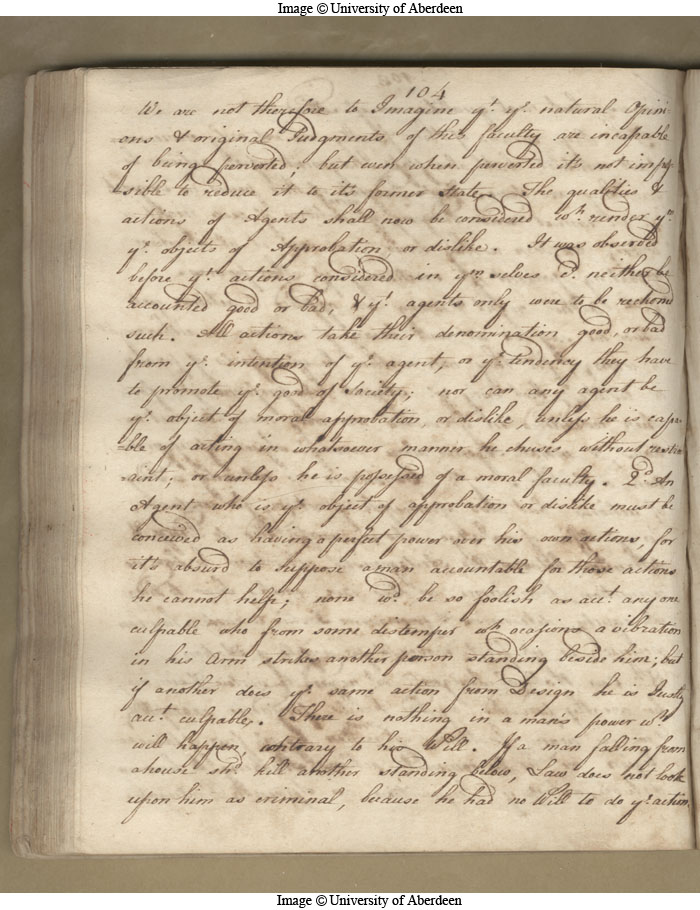 Image © University of Aberdeen
104
We are not therefore to Imagine yt. ye. natural Opini-
ons & original Judgments of this faculty are incapable
of being perverted; but even when perverted it's not impos
-sible to reduce it to it's former state. The qualities &
actions of Agents shall now be considered wh. render ym.
ye. objects of Approbation or dislike. It was observed
before yt. actions considered in ymselves cd. neither be
accounted good or bad, & yt. agents only were to be reckond
such. All actions take their denomination good, or bad
from ye. intention of ye. agent, or ye. tendency they have
to promote ye. good of Society; nor can any agent be
ye. object of moral approbation, or dislike, unless he is capa-
-ble of acting in whatsoever manner he chuses without restr
-aint; or unless he is possessed of a moral faculty. 2d. An
Agent who is ye. object of approbation or dislike must be
conceived as having a perfect power over his own actions, for
it's absurd to suppose a man accountable for those actions
he cannot help; none wd. be so foolish as acct. any one
culpable who from some distemper wh. ocasions a vibration
in his Arm strikes another person standing beside him; but
if another does ye. same action from Design he is Justly
acct. culpable. There is nothing in a man's power wh.
will happen contrary to his Will. If a man falling from
a house shd. kill another standing below, Law does not look
upon him as criminal, because he had no Will to do ye. action.
Image © University of Aberdeen